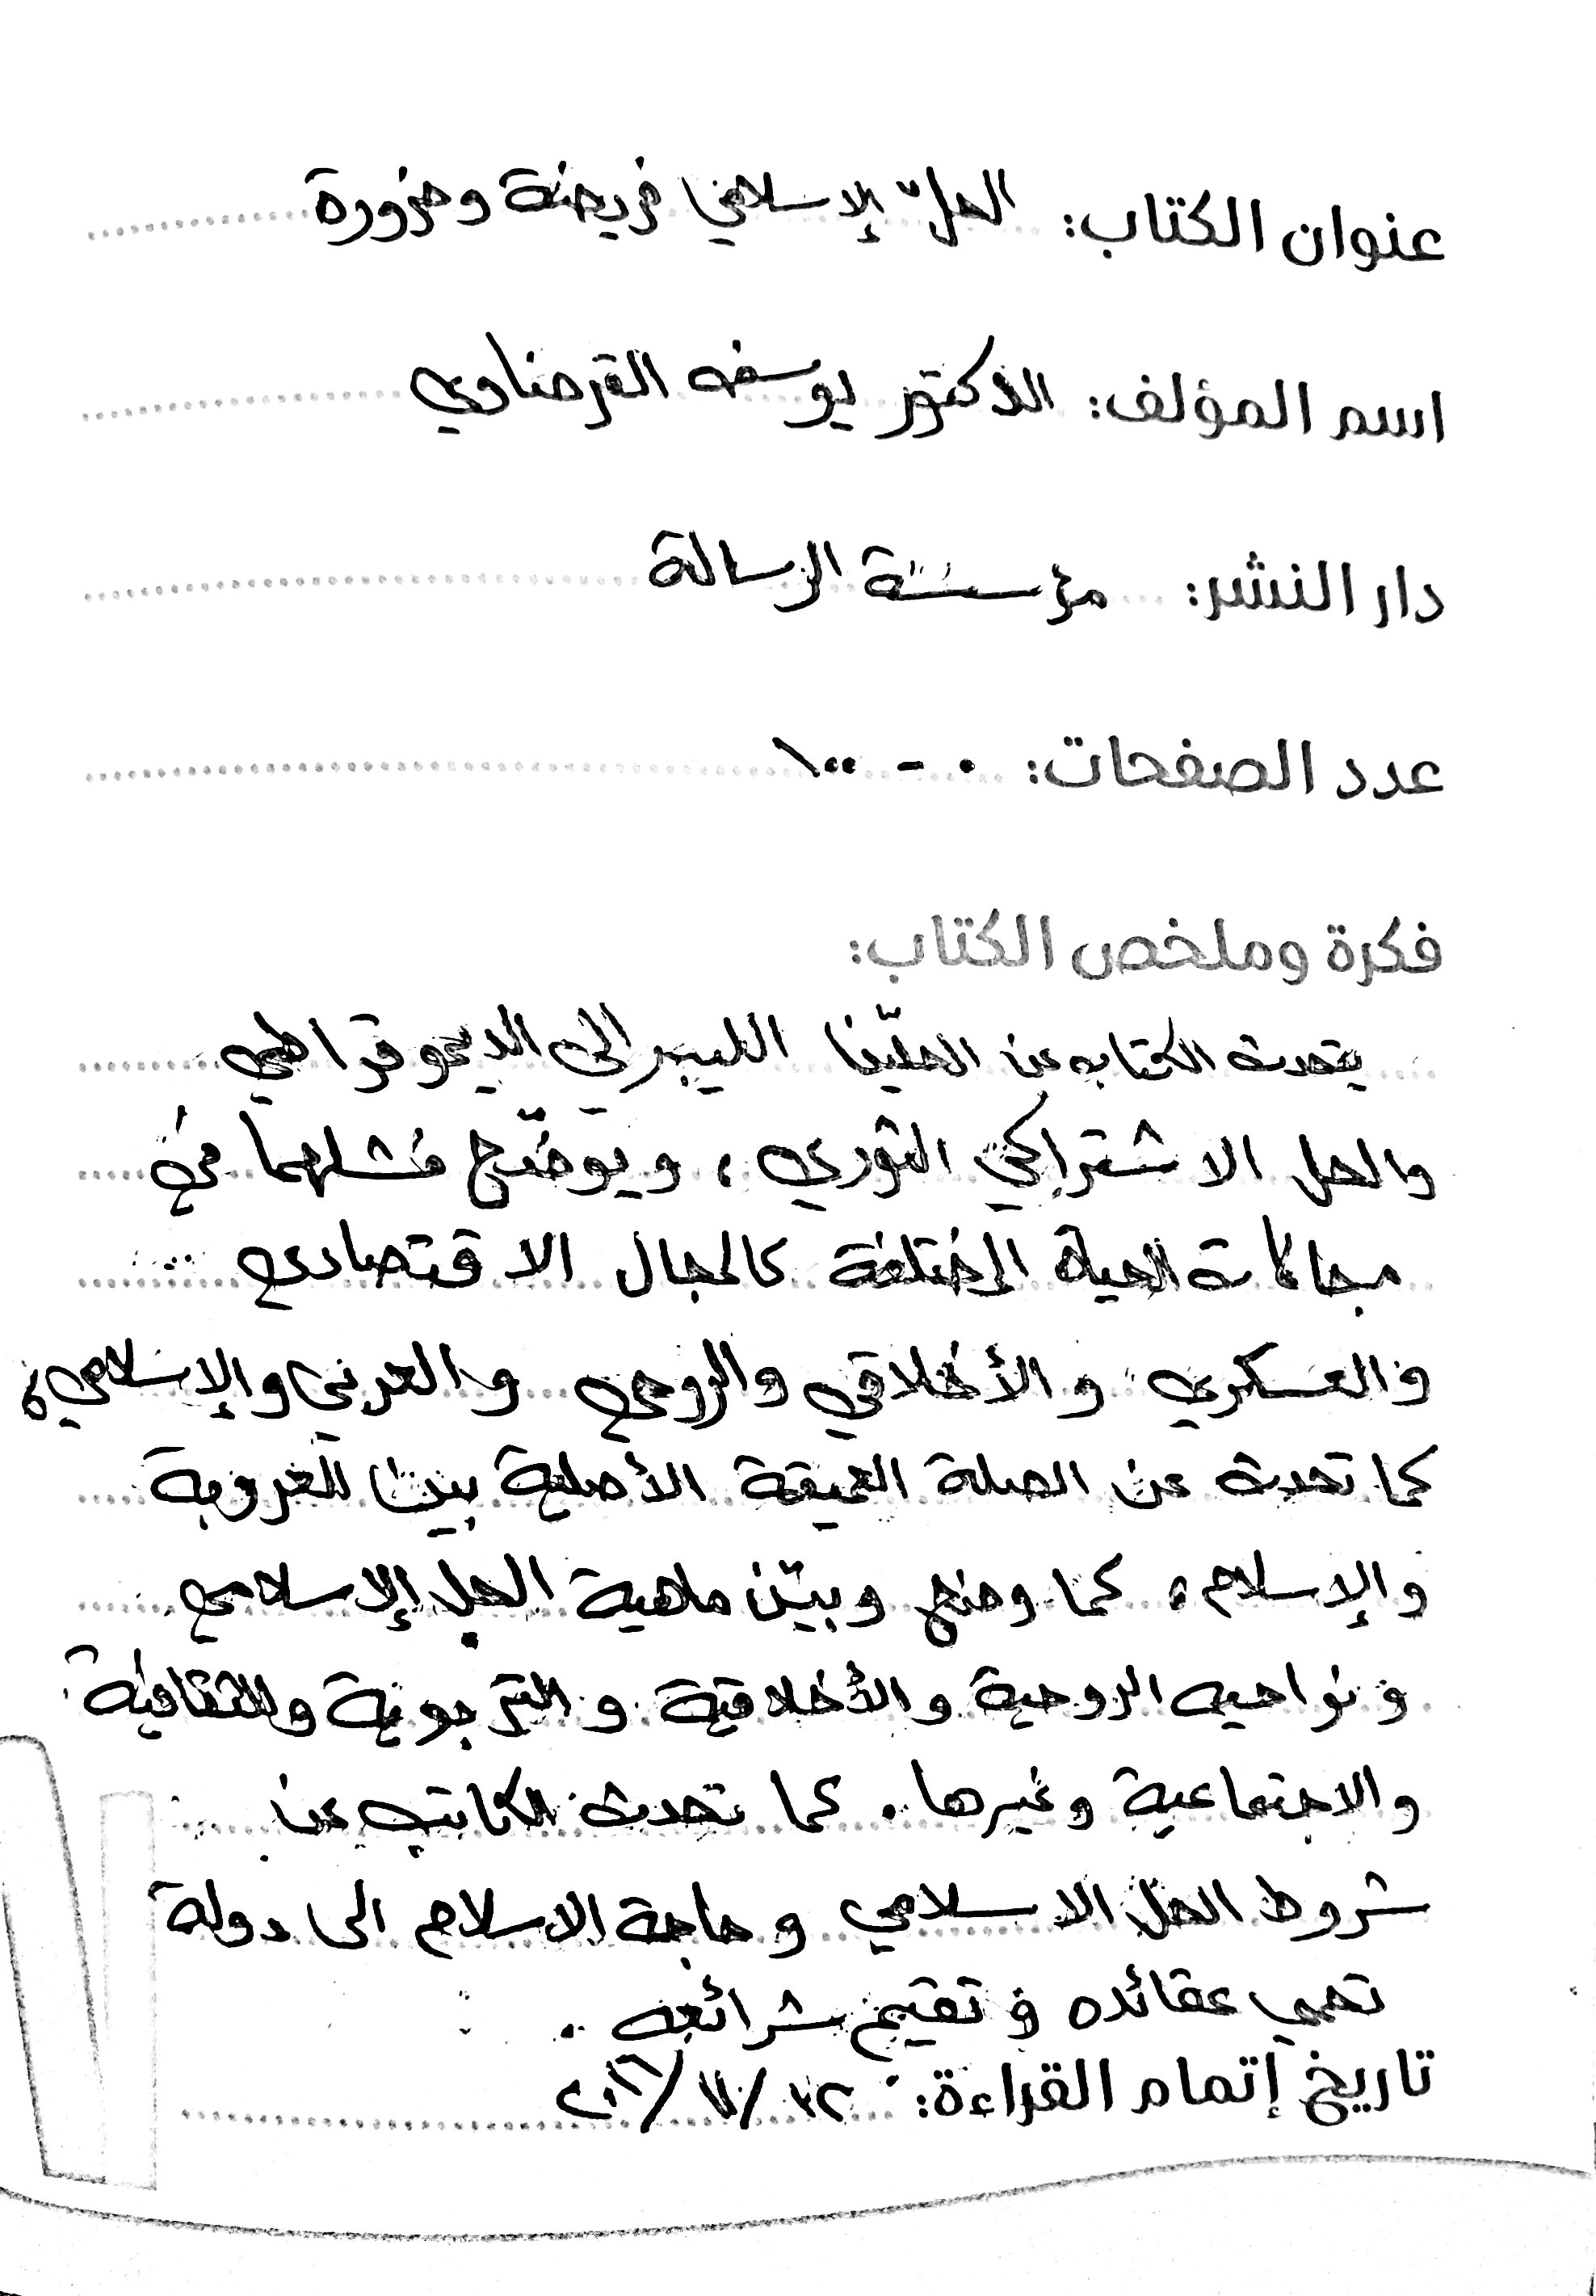 عنوان الكتاب: الحلّ الإسلامي فريضة وضرورة
اسم المؤلف: الدكتور يوسف القرضاوي
دار النشر: مؤسسة الرسالة
عدد الصفحات: ٠ - ١٠٠
فكرة وملخص الكتاب:
يتحدث الكتاب عن الحلّين الليبرالي الديموقراطي
والحل الاشتراكي الثوري، ويوضّح فشلهما في
مجالات الحياة المختلفة كالمجال الاقتصادي
والعسكري والأخلاقي والروحي والعربي والإسلامي،
كما تحدث عن الصلة العميقة الأصلية بين العروبة
والإسلام، كما وضح وبيّن ماهية الحل الإسلامي
ونواحيه الروحية والأخلاقية والتربوية والثقافية
والاجتماعية وغيرها. كما تحدث الكاتب عن
شروط الحل الاسلامي وحاجة الاسلام الى دولة
تحمي عقائده وتقيم شرائعه.
تاريخ إتمام القراءة: